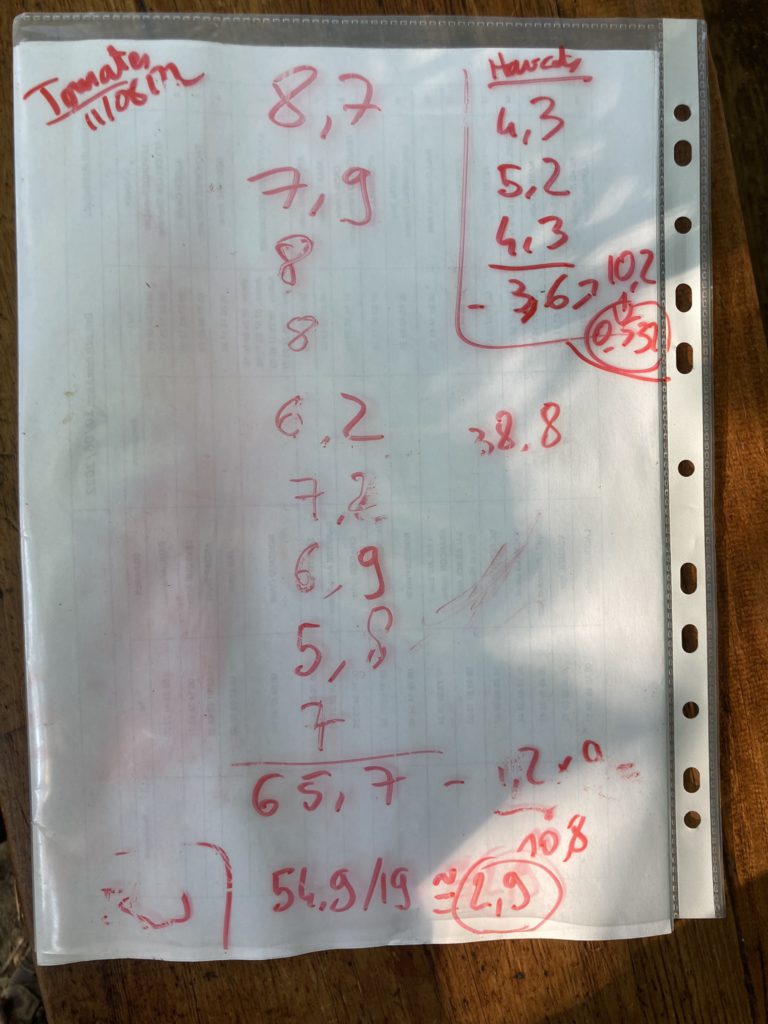 Tomates
11/06
8,7
7,9
8
8
6,2
7,2
6,9
5,8
7
65,7 - 1,2 x 9 =
10,8
54,9/19 ≅ 2,9
Haricots
4,3
5,2
4,3
- 3,6 > 10,2
38,8